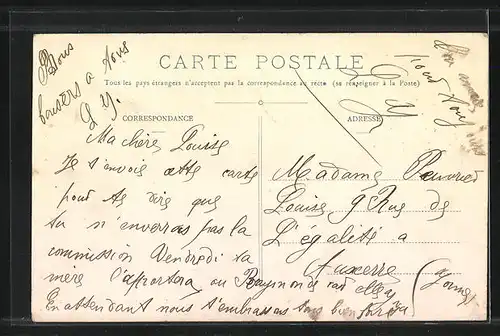 CARTE POSTALE
Tous les pays étrangers n'acceptent pas la correspondance au recto (se renseigner à la Poste)
CORRESPONDANCE
ADRESSE
Bons
baisers a tous
L Y.
Ma chère Louise
Je t'envoie cette carte
pour te dire que
tu n'enverras pas la
commission Vendredi ta
mère l'apportera ou Raymonde
En attendant nous t'embrassons tous bien fort
Madame
Louise 9 Rue de
L'égalité a
Auxerre
(Yonne)